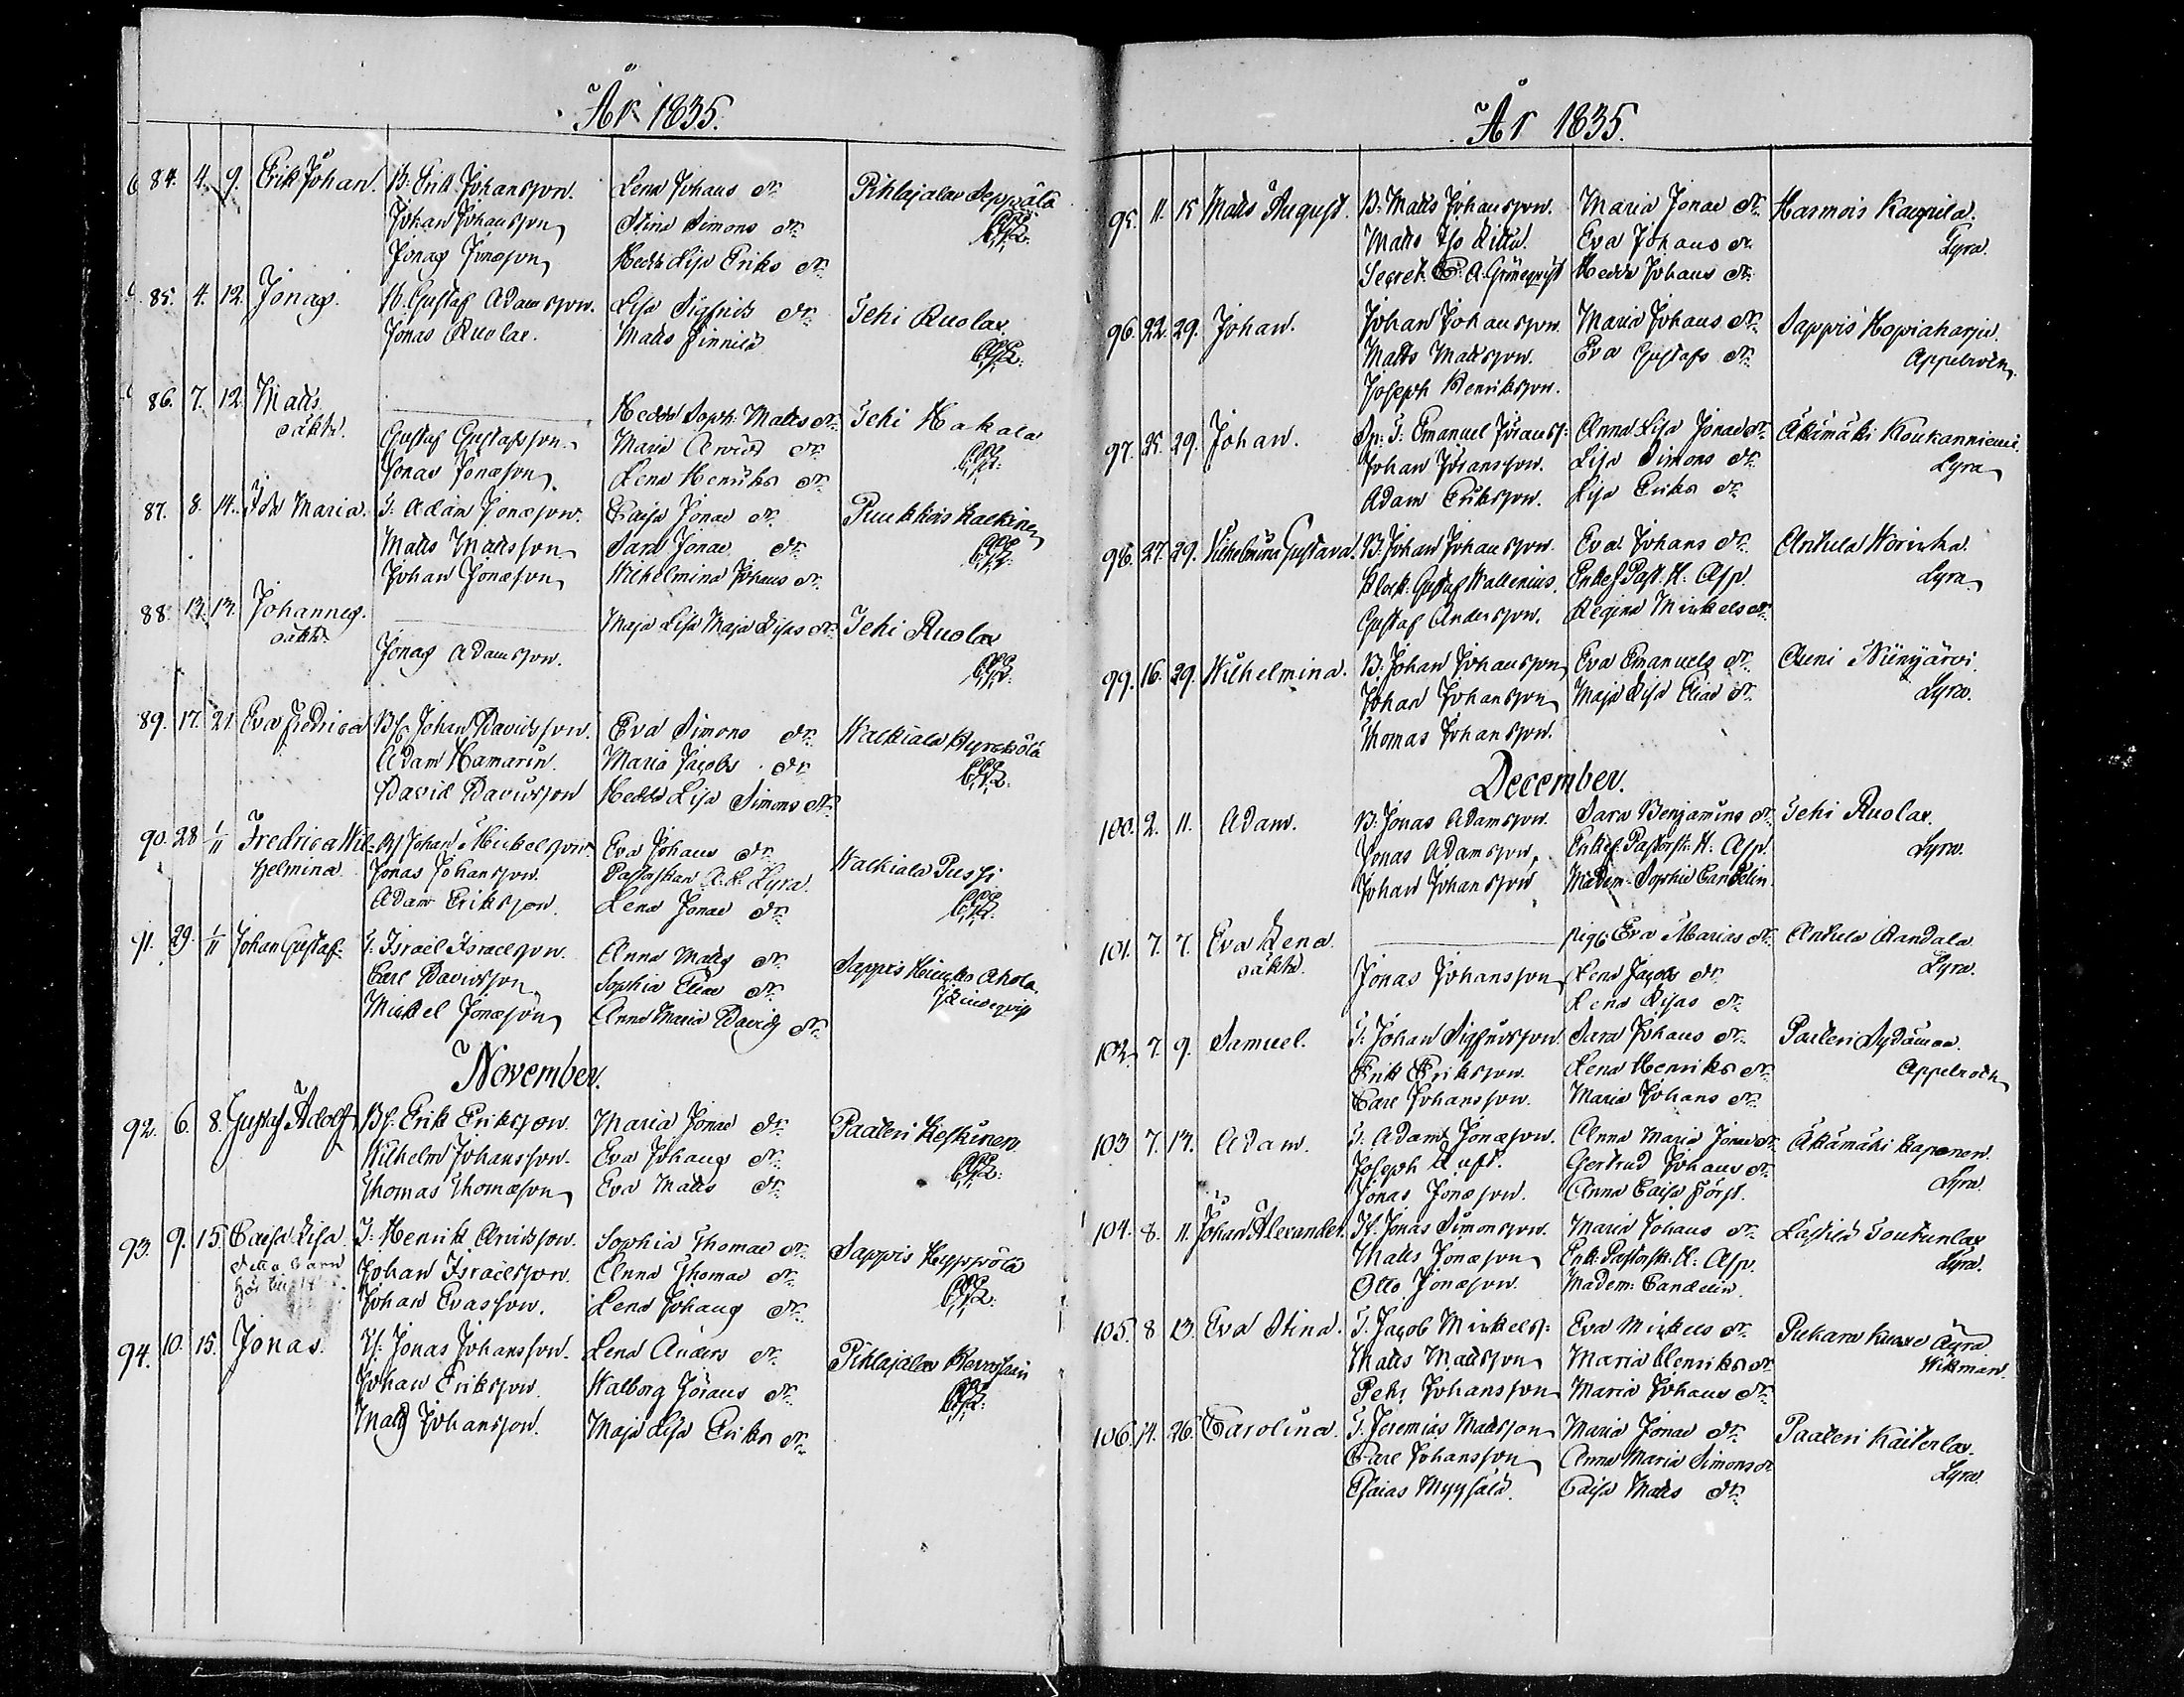 År 1835.
84. 4. 9. Erik Johan. B: Erik Johansson. Lena Johans dr. Pihlajalax Seppälä
Johan Johansson Stina Simons dr.
Jonas Jonasson Hedda Lisa Eriks dr.
85. 4. 12. Jonas. Gustaf Adamsson. Lisa Sigfrids dr. Tehi Ruolax
Jonas Ruolax. Matts Finnilä
86. 7. 12. Matts Hedda Soph: Matts dr. Tehi Hakala
oäkta. Gustaf Gustafsson. Maria Arvids dr.
Jonas Jonasson. Lena Henriks dr.
87. 8. 14. Ida Maria. T: Adam Jonasson. Caisa Jonae dr. Puukkois
Matts Mattsson Sara Jonae dr.
Johan Jonasson Wilhelmina Johans dr.
88. 13. 13. Johannes. Maja Lisa Maja Lisas dr. Tehi Ruolax
oäkta
Jonas Adamsson.
89. 17. 21. Eva Fredrica Johan Davidsson. Eva Simons dr. Walkiala
Adam Hamarin. Maria Jacobs dr.
David Davidsson Hedda Lisa Simons dr.
90. 28 1/11 Fredrica Wil- Johan Mickelsson Eva Johans dr. Walkiala Pussi
helmina Jonas Johansson. A. L. Lyra.
Adam Eriksson. Lena Jonae dr.
91. 29. 1/11 Johan Gustaf T. Israel Israelsson. Anna Matts dr. Sappis Ahola.
Carl Davidsson Sophia Eliae dr.
Mickel Jonasson Anna Maria Davids dr.
November.
92. 6. 8. Gustaf Adolf Erik Eriksson. Maria Jonae dr. Paateri Keskinen
Wilhelm Johansson. Eva Johans dr.
Thomas Thomasson Eva Matts dr.
93. 9. 15. Caisa Lisa T: Henrik Arvidsson. Sophia Thomae dr. Sappis Seppälä
detta barn Johan Israelsson. Anna Thomae dr.
Johan Evasson. Lena Johans dr.
94. 10. 15. Jonas. Jonas Johansson. Lena Anders dr. Pihlajalax
Johan Eriksson. Walborg Jörans dr.
Matts Johansson. Maja Lisa Eriks dr.
År 1835.
95. 11. 15 Matts August. B: Matts Johansson. Maria Jonae dr. Harmois Kaupila.
Matts Eva Johans dr. Lyra.
Secret: C. A. Grönqvist Hedda Johans dr.
96. 22. 29. Johan. Johan Johansson. Maria Johans dr. Sappis Hopiaharju.
Matts Mattsson. Eva Gustafs dr. Appelroth
Joseph Henriksson.
97. 25. 29. Johan. T: Emanuel Anna Lisa Jonae dr. Äkämäki Koukanniemi.
Johan Johansson. Lisa Simons dr. Lyra
Adam Eriksson. Lisa Eriks dr.
98. 27. 29. Wilhelmina Gustava. B: Johan Johansson. Eva Johans dr. Anhula
Klock: Gustaf Wallenius. Enkef Past: H: Asp. Lyra
Gustaf Andersson. Regina Mickels dr.
99. 16. 29. Wilhelmina. B: Johan Johansson Eva Emanuels dr. Auni Niinijärvi.
Johan Johansson Maja Lisa Eliae dr. Lyra.
Thomas Johansson.
December.
100. 2. 11. Adam. B: Jonas Adamsson. Sara Benjamins dr. Tehi Ruolax.
Jonas Adamsson, Enkef: Pastorsk: H: Asp. Lyra.
Johan Johansson Madem: Sophia Candelin
101. 7. 7. Eva Lena. pig: Eva Marias dr. Anhula
oäkta. Jonas Johansson Lena Jacobs dr. Lyra.
Lena Lisas dr.
102. 7. 9. Samuel. T: Johan Sigfridsson Sara Johans dr. Paateri
Erik Eriksson. Lena Henriks dr. Appelroth
Carl Johansson. Maria Johans dr.
103 7. 13. Adam. T. Adam Jonasson. Anna Maria Jonae dr. Äkämäki Kaponen.
Joseph Gertrud Johans dr. Lyra.
Jonas Jonasson. Anna Caisa
104. 8. 11. Johan Alexander. Jonas Simonsson. Maria Johans dr.
Matts Jonasson Enk: Pastorsk: H: Asp. Lyra.
Otto Jonasson. Madem: Candelin.
105. 8 13. Eva Stina. T. Jacob Mickelss: Eva Mickels dr.
Matts Mattsson Maria Henriks dr. Wikman.
Pehr Johansson Maria Johans dr.
106. 14. 26. Carolina. T. Jeremias Mattsson Maria Jonae dr. Paateri Kaiterlax.
Carl Johansson Anna Maria Simons dr Lyra.
Esaias Myysälä. Caisa Matts dr.